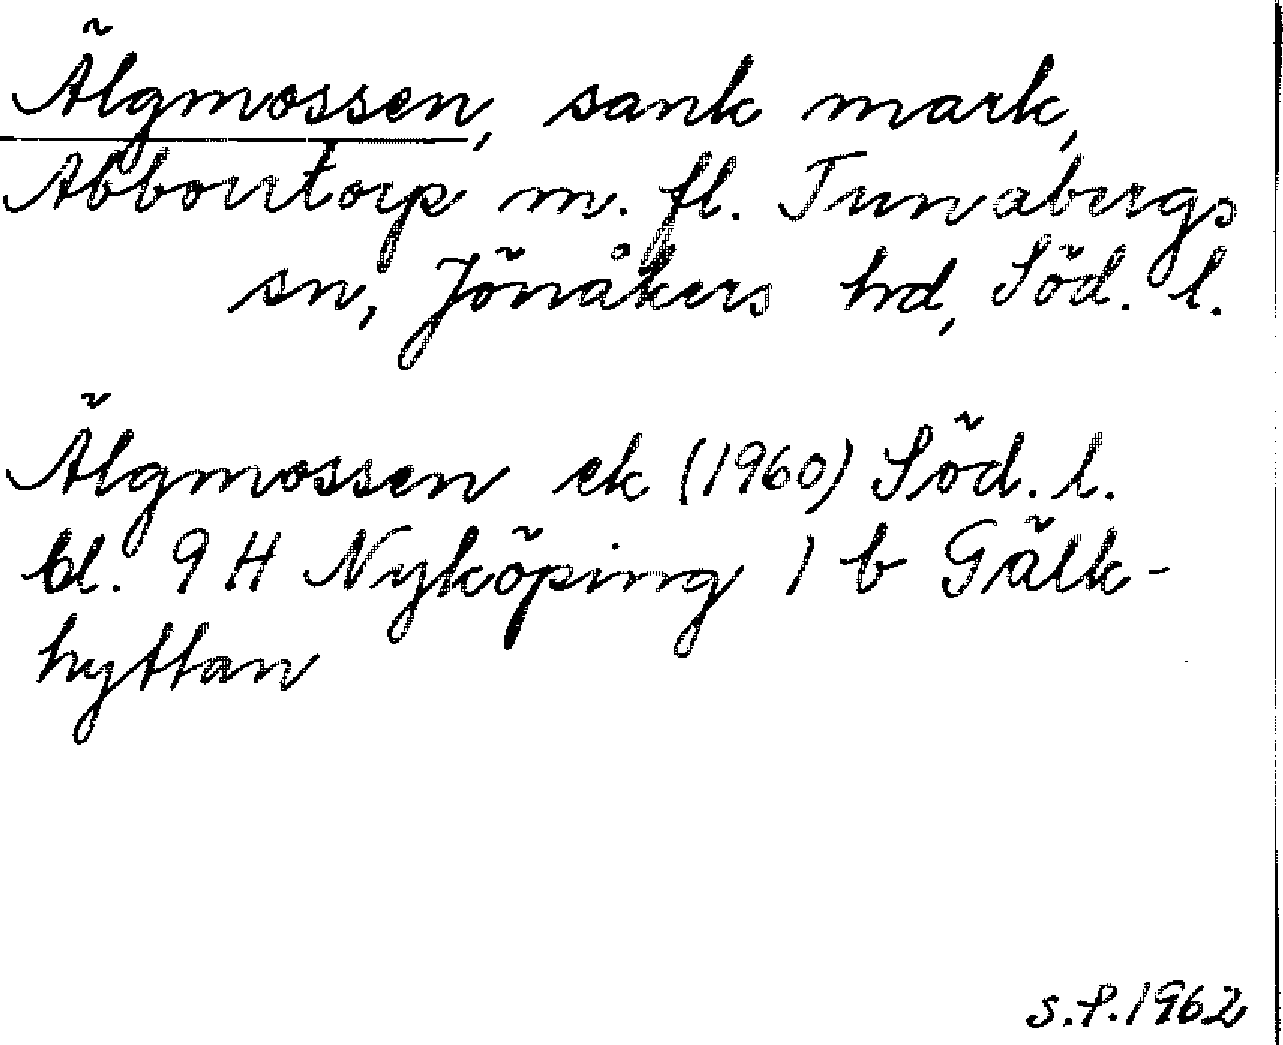 Älgmossen, sank mark,
Abborrtorp m. fl. Tunabergs
sn, Jönåkers hd, Söd. l.
Älgmossen ek (1960) Söd. l.
bl. 9 H Nyköping 1 b Gälk-
hyttan
s.f. 1962